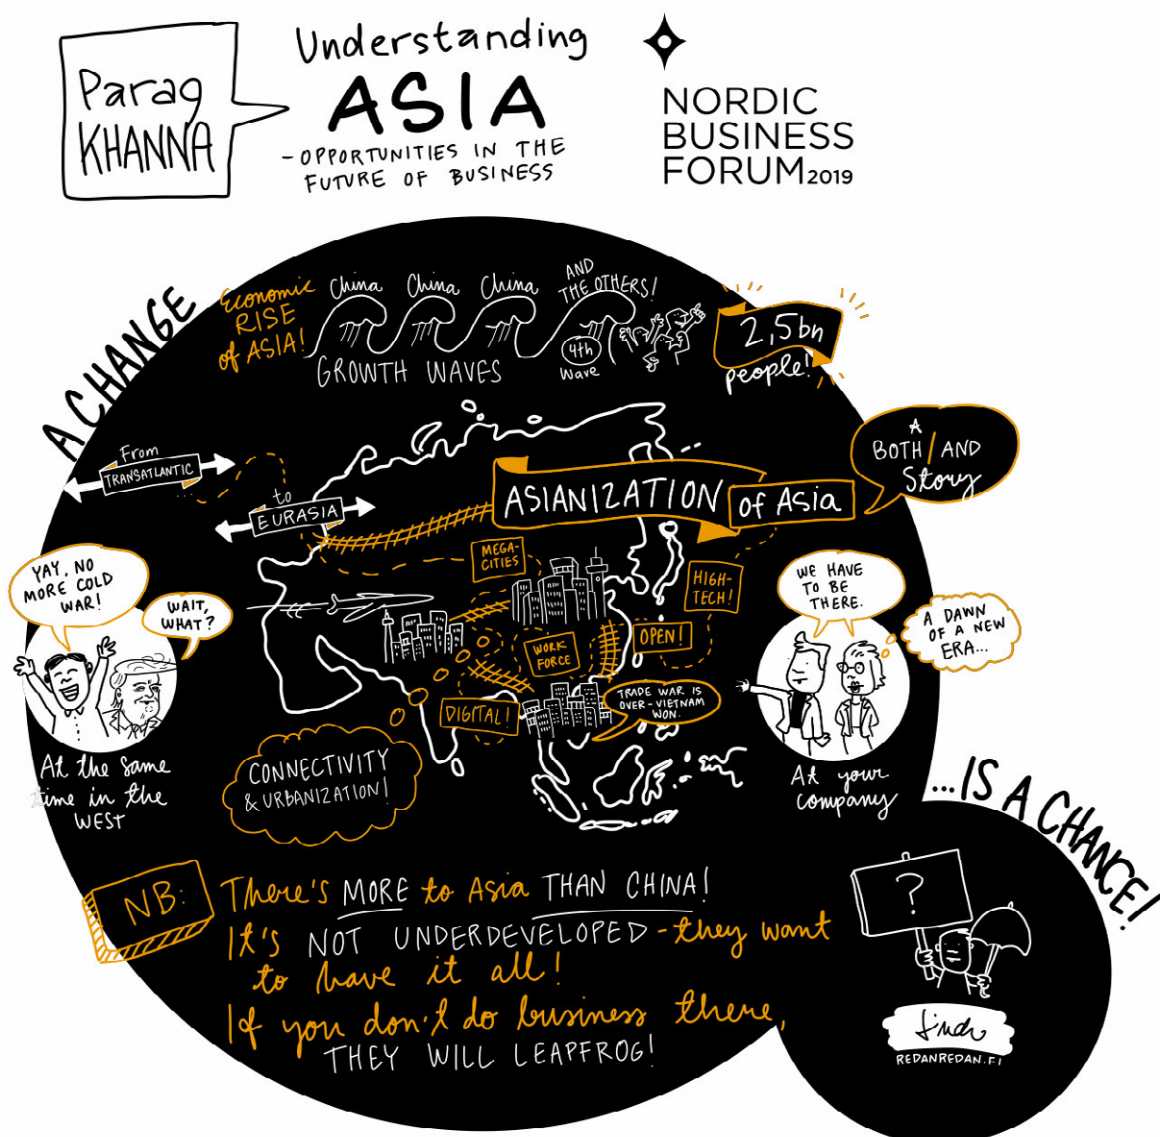 Parag
KHANNA
Understanding
ASIA
- OPPORTUNITIES IN THE
FUTURE OF BUSINESS
NORDIC
BUSINESS
FORUM 2019
A CHANGE
Economic
RISE
of ASIA!
China
China
China
AND
THE OTHERS!
4th
Wave
GROWTH WAVES
2,5bn
people!
From
TRANSATLANTIC
to
EURASIA
ASIANIZATION
of Asia
A
BOTH / AND
Story
MEGA-
CITIES
HIGH-
TECH!
OPEN!
WORK
FORCE
DIGITAL!
TRADE WAR IS
OVER - VIETNAM
WON.
CONNECTIVITY
& URBANIZATION!
YAY, NO
MORE COLD
WAR!
WAIT,
WHAT?
At the same
time in the
WEST
WE HAVE
TO BE
THERE.
A DAWN
OF A NEW
ERA...
At your
company
...IS A CHANCE!
NB:
There's MORE to Asia THAN CHINA!
It's NOT UNDERDEVELOPED - they want
to have it all!
If you don't do business there,
THEY WILL LEAPFROG!
?
REDANREDAN.FI